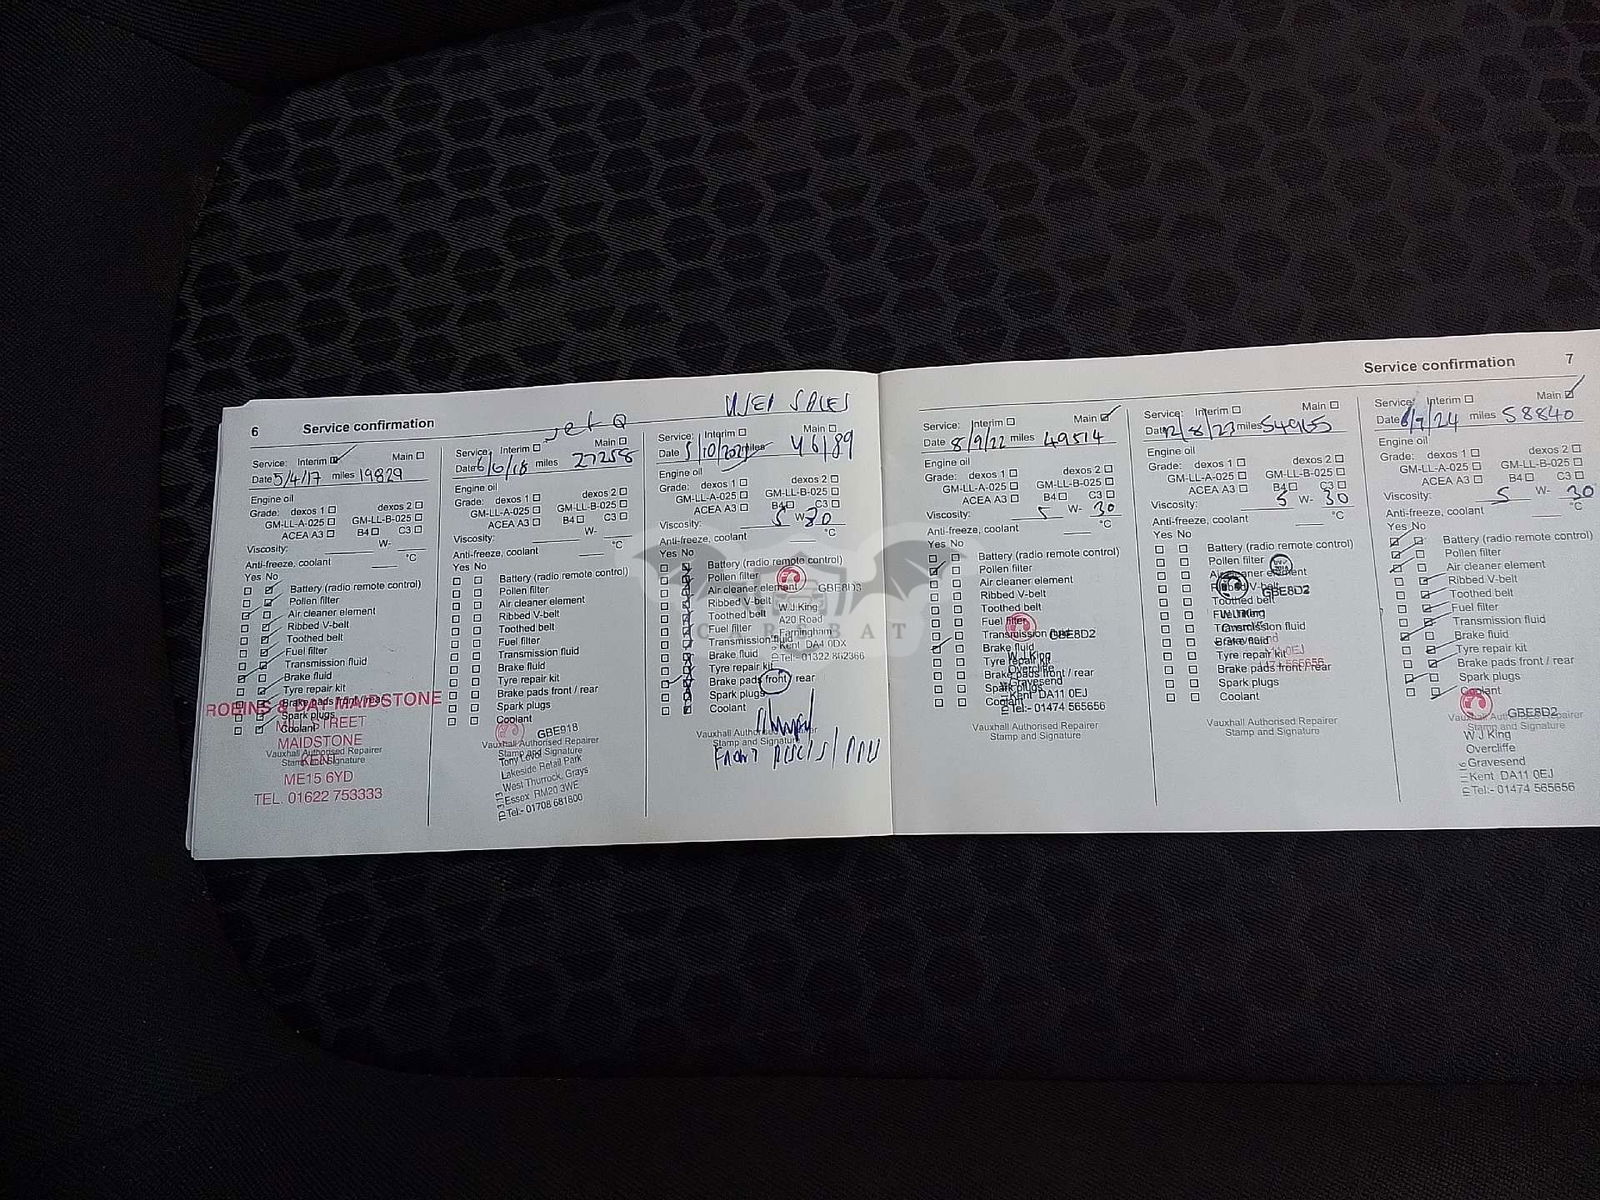 6 Service confirmation
Service: Interim Main
Date 5/4/17 miles 19829
Engine oil
Grade: dexos 1 dexos 2
GM-LL-A-025 GM-LL-B-025
ACEA A3 B4 C3
Viscosity: W-
Anti-freeze, coolant °C
Yes No
Battery (radio remote control)
Pollen filter
Air cleaner element
Ribbed V-belt
Toothed belt
Fuel filter
Transmission fluid
Brake fluid
Tyre repair kit
Brake pads front / rear
Spark plugs
Coolant
Vauxhall Authorised Repairer
Stamp and Signature
ROBINS & DAY MAIDSTONE
MILL STREET
MAIDSTONE
KENT
ME15 6YD
TEL. 01622 753333
Service: Interim Main
Date 6/6/18 miles 27258
Engine oil
Grade: dexos 1 dexos 2
GM-LL-A-025 GM-LL-B-025
ACEA A3 B4 C3
Viscosity: W-
Anti-freeze, coolant °C
Yes No
Battery (radio remote control)
Pollen filter
Air cleaner element
Ribbed V-belt
Toothed belt
Fuel filter
Transmission fluid
Brake fluid
Tyre repair kit
Brake pads front / rear
Spark plugs
Coolant
GBE918
Vauxhall Authorised Repairer
Stamp and Signature
Lakeside Retail Park
West Thurrock, Grays
Essex RM20 3WE
Tel:- 01708 681800
USED SALES
Service: Interim Main
Date 5/10/2021 miles
Engine oil
Grade: dexos 1 dexos 2
GM-LL-A-025 GM-LL-B-025
ACEA A3 B4 C3
Viscosity: 5 W- 30
Anti-freeze, coolant °C
Yes No
Battery (radio remote control)
Pollen filter
Air cleaner element
Ribbed V-belt
Toothed belt
Fuel filter
Transmission fluid
Brake fluid
Tyre repair kit
Brake pads front / rear
Spark plugs
Coolant
W J King
A20 Road
Farningham
Kent DA4 0DX
Tel:- 01322 862366
Vauxhall Authorised Repairer
Stamp and Signature
CAREBAT
Service confirmation 7
Service: Interim Main
Date 8/9/22 miles 49514
Engine oil
Grade: dexos 1 dexos 2
GM-LL-A-025 GM-LL-B-025
ACEA A3 B4 C3
Viscosity: 5 W- 30
Anti-freeze, coolant °C
Yes No
Battery (radio remote control)
Pollen filter
Air cleaner element
Ribbed V-belt
Toothed belt
Fuel filter
Transmission fluid
Brake fluid
Tyre repair kit
Brake pads front / rear
Spark plugs
Coolant
GBE8D2
W J King
Overcliffe
Gravesend
Kent DA11 0EJ
Tel:- 01474 565656
Vauxhall Authorised Repairer
Stamp and Signature
Service: Interim Main
Date miles
Engine oil
Grade: dexos 1 dexos 2
GM-LL-A-025 GM-LL-B-025
ACEA A3 B4 C3
Viscosity: 5 W- 30
Anti-freeze, coolant °C
Yes No
Battery (radio remote control)
Pollen filter
Air cleaner element
Ribbed V-belt
Toothed belt
Fuel filter
Transmission fluid
Brake fluid
Tyre repair kit
Brake pads front / rear
Spark plugs
Coolant
GBE8D2
W J King
Vauxhall Authorised Repairer
Stamp and Signature
Service: Interim Main
Date miles 58840
Engine oil
Grade: dexos 1 dexos 2
GM-LL-A-025 GM-LL-B-025
ACEA A3 B4 C3
Viscosity: 5 W- 30
Anti-freeze, coolant °C
Yes No
Battery (radio remote control)
Pollen filter
Air cleaner element
Ribbed V-belt
Toothed belt
Fuel filter
Transmission fluid
Brake fluid
Tyre repair kit
Brake pads front / rear
Spark plugs
Coolant
Vauxhall Authorised Repairer
Stamp and Signature
GBE8D2
W J King
Overcliffe
Gravesend
Kent DA11 0EJ
Tel:- 01474 565656